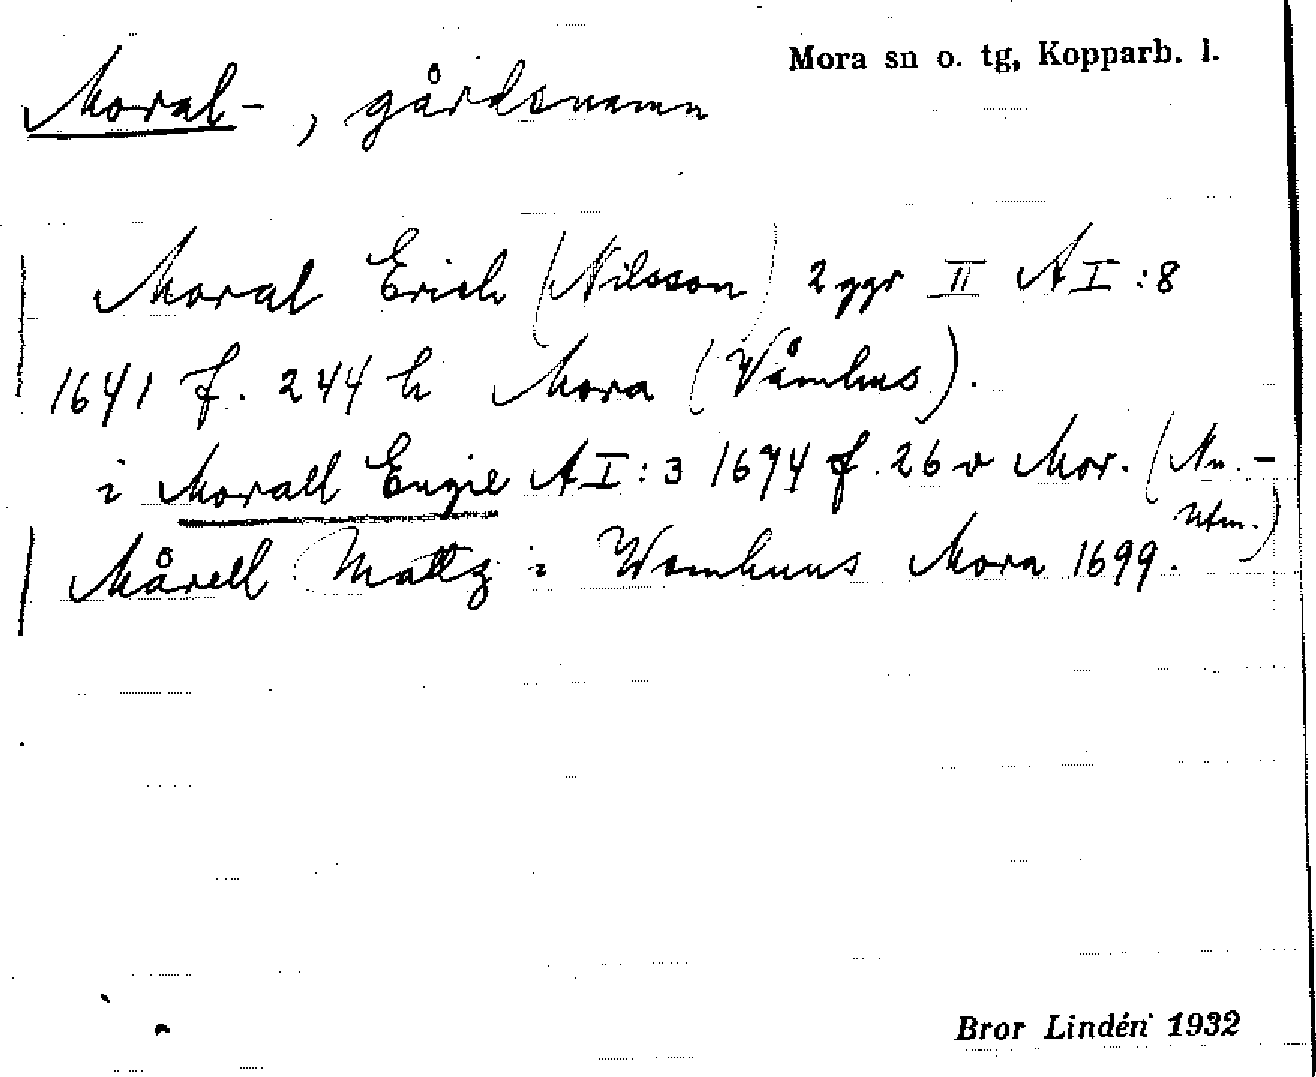 Mora sn o. tg, Kopparb. l.
Moral-, gårdsnamn
Moral Erich (Nilsson) 2 ggr II A I : 8
1641 f. 244 h Mora (Våmhus).
i Morall Engie A I : 3 1674 f. 26 v Mor. (Nu. -
Utm.)
Mårell Mattz i Womhuus Mora 1699.
Bror Lindén 1932